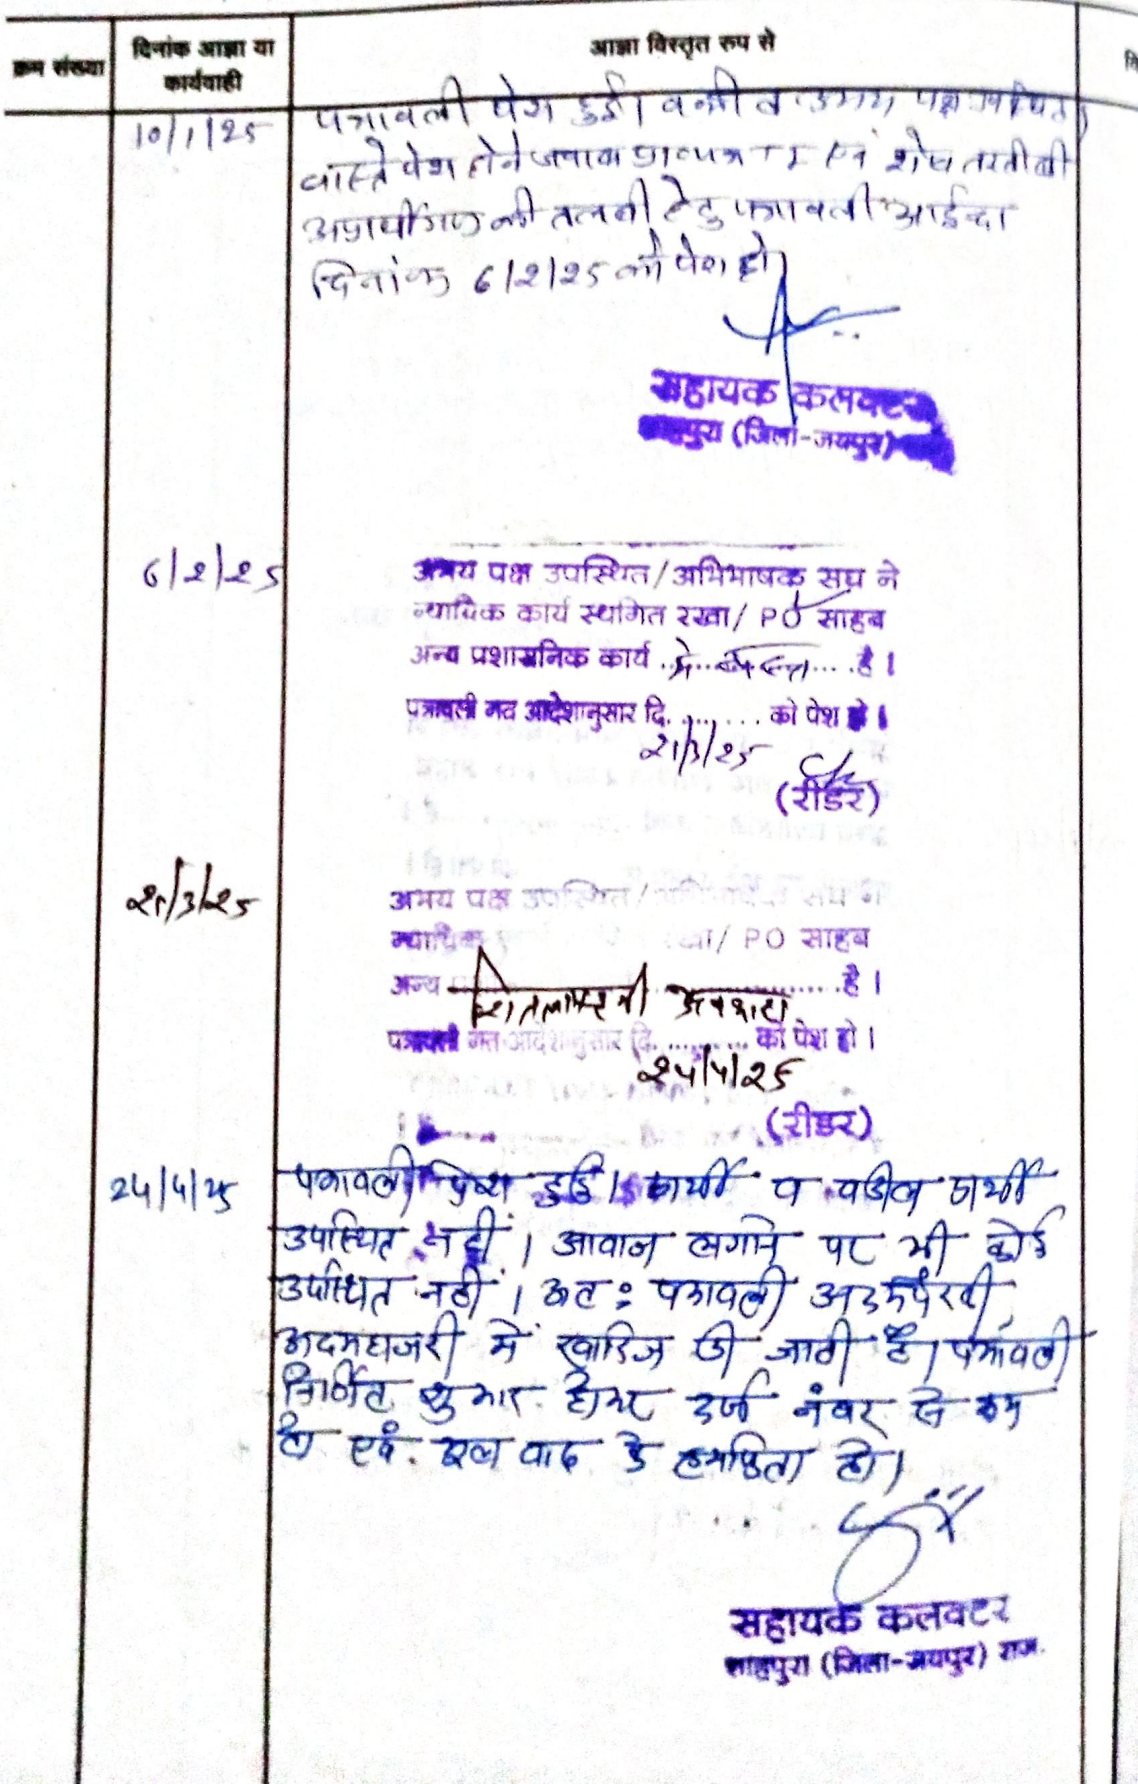 क्रम संख्या
दिनांक आज्ञा या
कार्यवाही
आज्ञा विस्तृत रुप से
10/1/25
पत्रावली पेश हुई। वकील उभय पक्ष उपस्थित
वास्ते पेश होने जवाब प्रा०पत्र T I एवं शेष तरतीबी
अप्रार्थीगण की तलबी हेतु पत्रावली आईन्दा
दिनांक 6/2/25 को पेश हो।
सहायक कलक्टर
शाहपुरा (जिला-जयपुर)
6/2/25
उभय पक्ष उपस्थित/अभिभाषक संघ ने
न्यायिक कार्य स्थगित रखा/ PO साहब
अन्य प्रशासनिक कार्य में व्यस्त है।
पत्रावली गत आदेशानुसार दि. ........ को पेश हो।
21/3/25
(रीडर)
21/3/25
उभय पक्ष उपस्थित/अभिभाषक संघ ने
न्यायिक रखा/ PO साहब
अन्य है।
शीतलाष्टमी अवकाश
पत्रावली गत आदेशानुसार दि. ........ को पेश हो।
24/4/25
(रीडर)
24/4/25
पत्रावली पेश हुई। प्रार्थी व वकील प्रार्थी
उपस्थित नहीं। आवाज लगाने पर भी कोई
उपस्थित नहीं। अतः पत्रावली अदमपैरवी
अदमहाजरी में खारिज की जाती है। पत्रावली
निर्णित शुमार होकर दर्ज नंबर से कम
हो एवं मूल वाद के हो।
सहायक कलक्टर
शाहपुरा (जिला-जयपुर) राज.